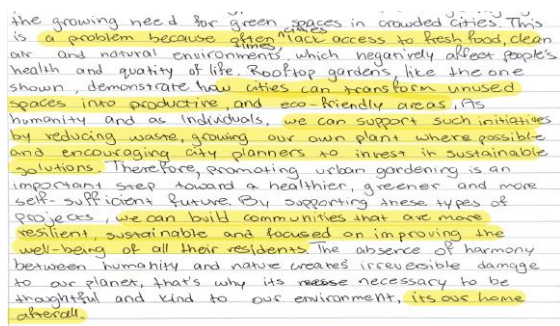 the growing need for green spaces in crowded cities. This
is a problem because often cities lack access to fresh food, clean
times
air and natural environments which negatively affect people's
health and quality of life. Rooftop gardens, like the one
shown, demonstrate how cities can transform unused
spaces into productive, and eco-friendly areas. As
humanity and as individuals, we can support such initiatives
by reducing waste, growing our own plant where possible
and encouraging city planners to invest in sustainable
solutions. Therefore, promoting urban gardening is an
important step toward a healthier, greener and more
self-sufficient future. By supporting these types of
projects, we can build communities that are more
resilient, sustainable and focused on improving the
well-being of all their residents. The absence of harmony
between humanity and nature creates irreversible damage
to our planet, that's why its necessary to be
thoughtful and kind to our environment, its our home
afterall.